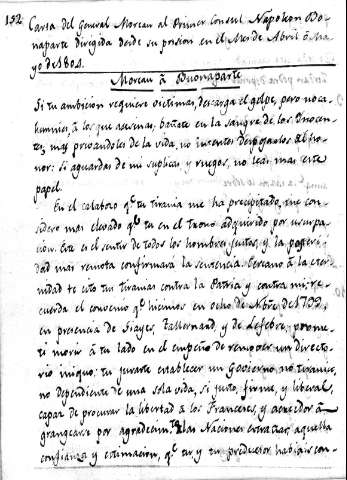 152
Carta del General Moreau al Primer Consul Napoleon Bo-
naparte dirigida desde su prision en el Mes de Abril ó Ma-
yo de 1804.
Moreau á Buonaparte
Si tu ambicion requiere victimas, descarga el golpe, pero no ca-
lumnies, á los que asesinas, bañate en la sangre de los Ynocen-
tes, mas privandoles de la vida, no intentes despojarlos del ho-
nor: si aguardas de mi suplicas y ruegos, no leas mas este
papel.
En el calabozo qe. tu tirania me ha precipitado, me con-
sidero mas elevado qe. tu en el Trono adquirido por usurpa-
cion. Este es el sentir de todos los hombres justos, y la posteri-
dad mas remota confirmará la sentencia. Cercano á la eter-
nidad te cito tus tiranias contra la Patria y contra mi: re-
cuerda el convenio qe. hicimos en ocho de Nbre. de 1799,
en presencia de Siayes, Tallernand, y de Lefebre, prome-
ti morir á tu lado en el empeño de remover un directo-
rio iniquo: tu juraste establecer un Govierno no tiranico,
no dependiente de una sola vida, si justo, firme, y liberal,
capaz de procurar la libertad á los Franceses, y acreedor á
grangearse por agradecimto. de las Naciones extrañas, aquella
confianza y estimacion, qe. tu, y tu predecesor habiais con-